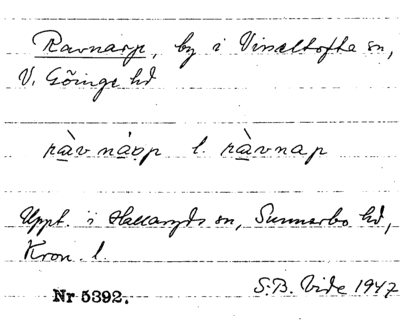 Ravnarp, by i Visseltofta sn,
V. Göinge hd
ràv nàrp l. ràvnap
Uppt. i Hallaryds sn, Sunnerbo hd,
Kron. l.
Nr 5392. S.B. Vide 1947